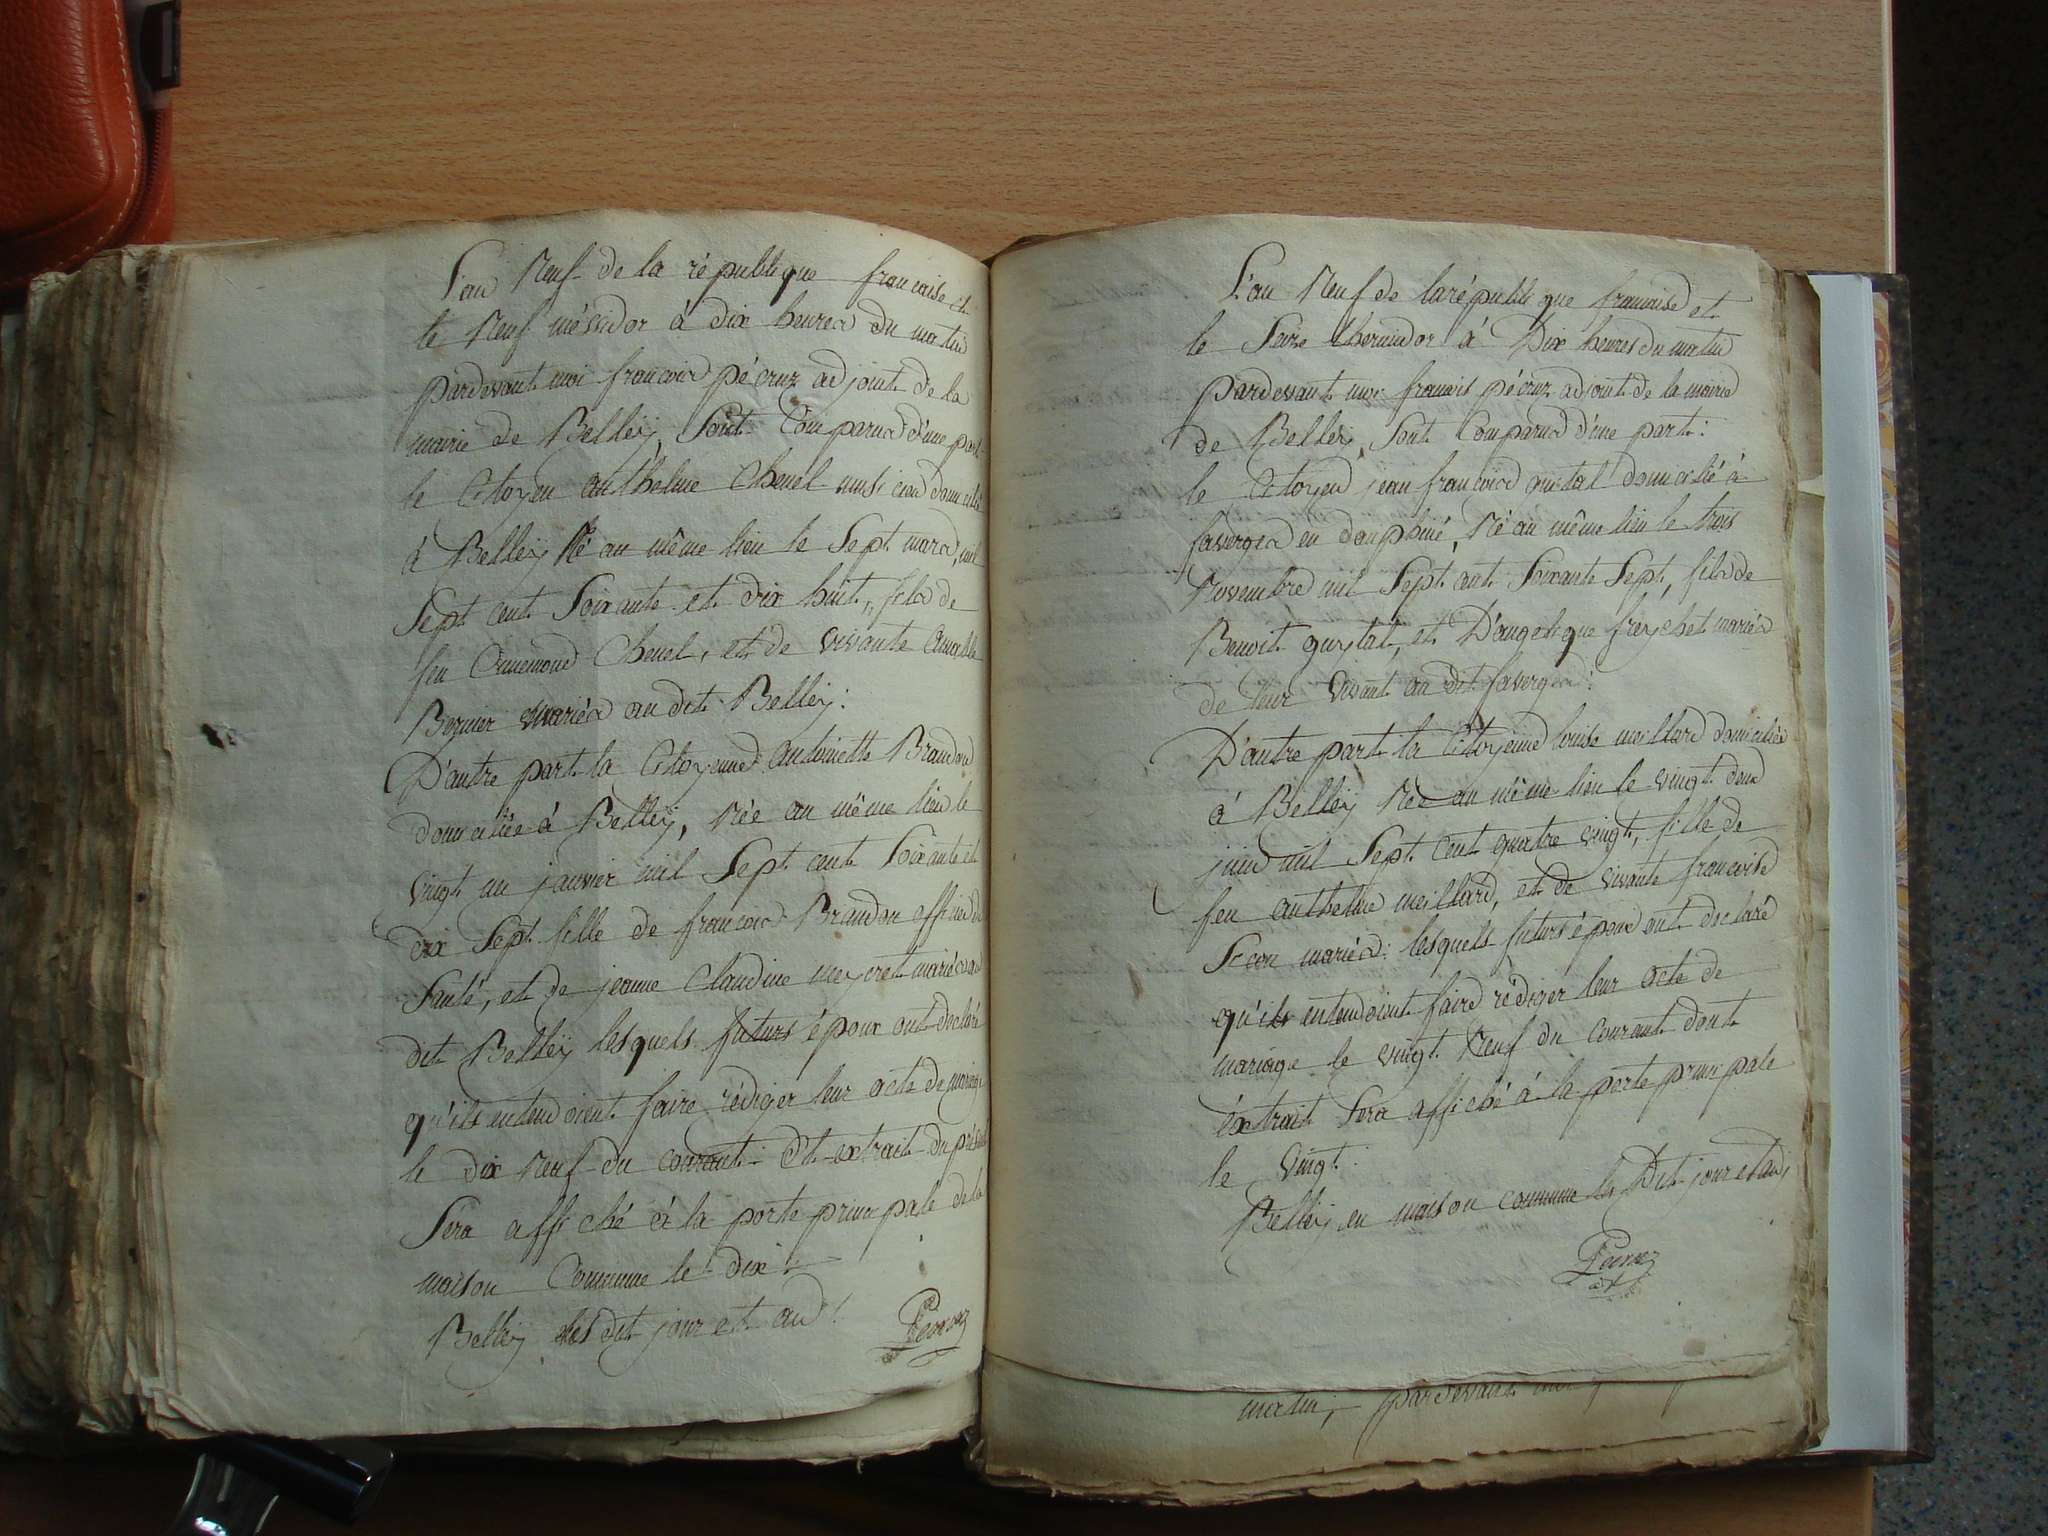 L'an Neuf de la république francaise et
le Neuf méssidor à dix heures du matin
pardevant moi francois pécruz adjoint de la
mairie de Belleÿ, Sont Comparus d'une part
le Citoyen anthelme Chenel musicien domicilié
à Belleÿ Né au même lieu le Sept mars, mil
Sept cent Soixante et dix huit, fils de
feu Chenel, et de vivante
Bernier mariés au dit Belleÿ:
D'autre part la Citoyenne antoinette Brandon
domiciliée à Belleÿ, Née au même lieu le
vingt un janvier mil Sept cent Soixante et
dix Sept fille de francois Brandon officier de
Santé, et de jeanne Claudine meycret mariés au
dit Belleÿ lesquels futurs époux ont déclaré
qu'ils entendoient faire rédiger leur acte de mariage
le dix Neuf du courant Et extrait du présent
Sera affiché à la porte principale de la
maison Commune le dix:
Belleÿ les dit jour et an!
L'an Neuf de la république francaise et
le Seize thermidor à Dix heures du matin
pardevant moi francois pécruz adjoint de la mairie
de Belleÿ, Sont Comparus d'une part:
le Citoyen jean francois domicilié à
faverges en dauphiné, Né au même lieu le trois
Novembre mil Sept cent Soixante Sept, fils de
Benoit et D'angelique freychet mariés
de leur vivant au dit faverges:
D'autre part la Citoyenne louise meillard domiciliée
à Belleÿ Née au même lieu le vingt deux
juin mil Sept Cent quatre vingt, fille de
feu anthelme meillard, et de vivante francoise
mariés: lesquels futurs époux ont déclaré
qu'ils entendoient faire rédiger leur acte de
mariage le vingt Neuf du Courant dont
éxtrait Sera affiché à la porte principale
le vingt:
Belleÿ en maison commune les Dit jour et an;
matin, pardevant